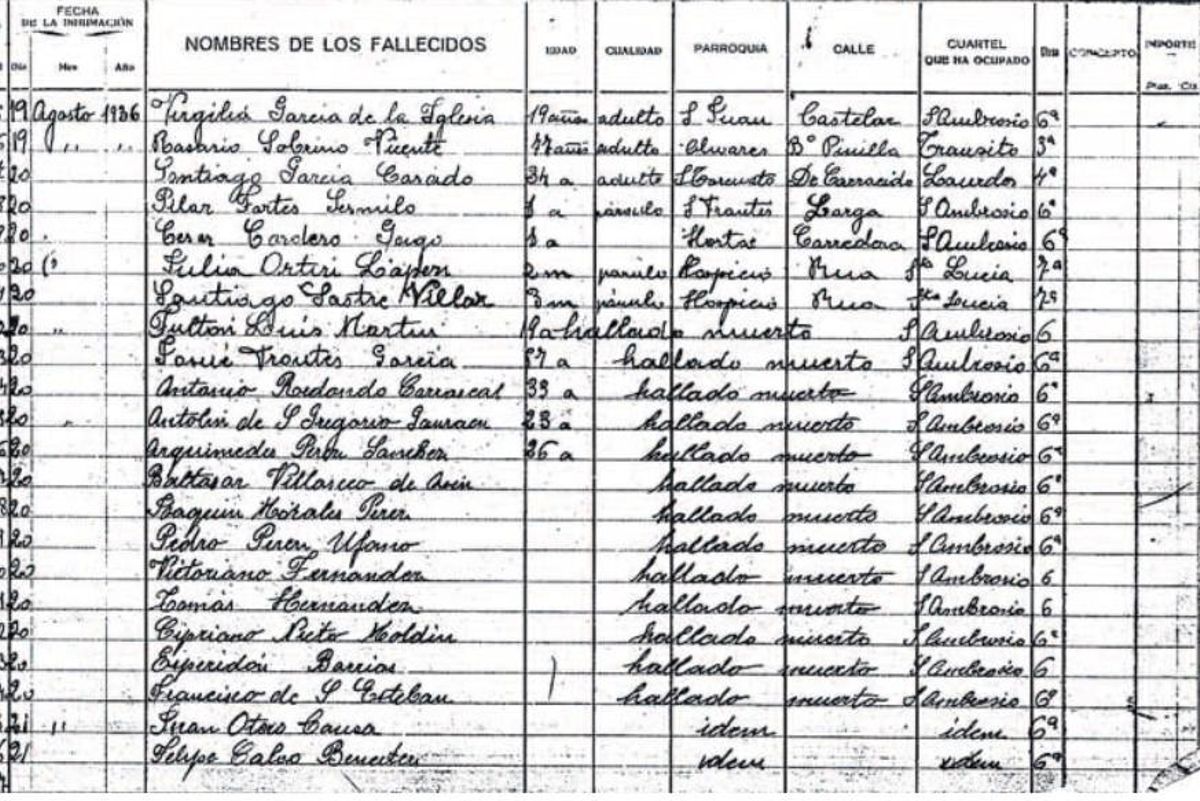 FECHA DE LA INHUMACIÓN
NOMBRES DE LOS FALLECIDOS EDAD CUALIDAD PARROQUIA CALLE CUARTEL QUE HA OCUPADO CONCEPTO IMPORTE
Día Mes Año Ptas. Cts
19 Agosto 1936 Virgilio Garcia de la Iglesia 19 años adulto S Juan Castelar S Ambrosio 6ª
19 " " Rosario Sobrino Vicente 47 años adulto Olivares Bº Pinilla Transito 3ª
20 Santiago Garcia Casado 34 a adulto S Torcuato De Carracido Lourdes 4ª
20 Pilar Fortes Sermilo a párvulo S Frontis Larga S Ambrosio 6ª
20 Cesar Cordero Gago a Horta Corredora S Ambrosio 6ª
20 Julia Ortiz López 2 m párvulo Hospicio Rua Sta Lucia 7ª
20 Santiago Sastre Villar 3 m párvulo Hospicio Rua Sta Lucia 7ª
20 " Luis Martin 19 a hallado muerto S Ambrosio 6
20 Garcia 57 a hallado muerto S Ambrosio 6ª
20 Antonio Redondo Carrascal 33 a hallado muerto S Ambrosio 6ª
20 Antolin de S Gregorio 23 a hallado muerto S Ambrosio 6ª
20 Arquimedes Perez Sanchez 26 a hallado muerto S Ambrosio 6ª
20 Baltasar Villaseco de hallado muerto S Ambrosio 6ª
20 Joaquin Morales Perez hallado muerto S Ambrosio 6ª
20 Pedro Perez Ufano hallado muerto S Ambrosio 6ª
20 Victoriano Fernandez hallado muerto S Ambrosio 6
20 Tomás Hernandez hallado muerto S Ambrosio 6
20 Cipriano Nieto Roldin hallado muerto S Ambrosio 6ª
20 Esperidón Barrios hallado muerto S Ambrosio 6
20 Francisco de S Esteban hallado muerto S Ambrosio 6ª
21 " Juan Otero idem idem 6ª
21 Felipe Calvo idem idem 6ª